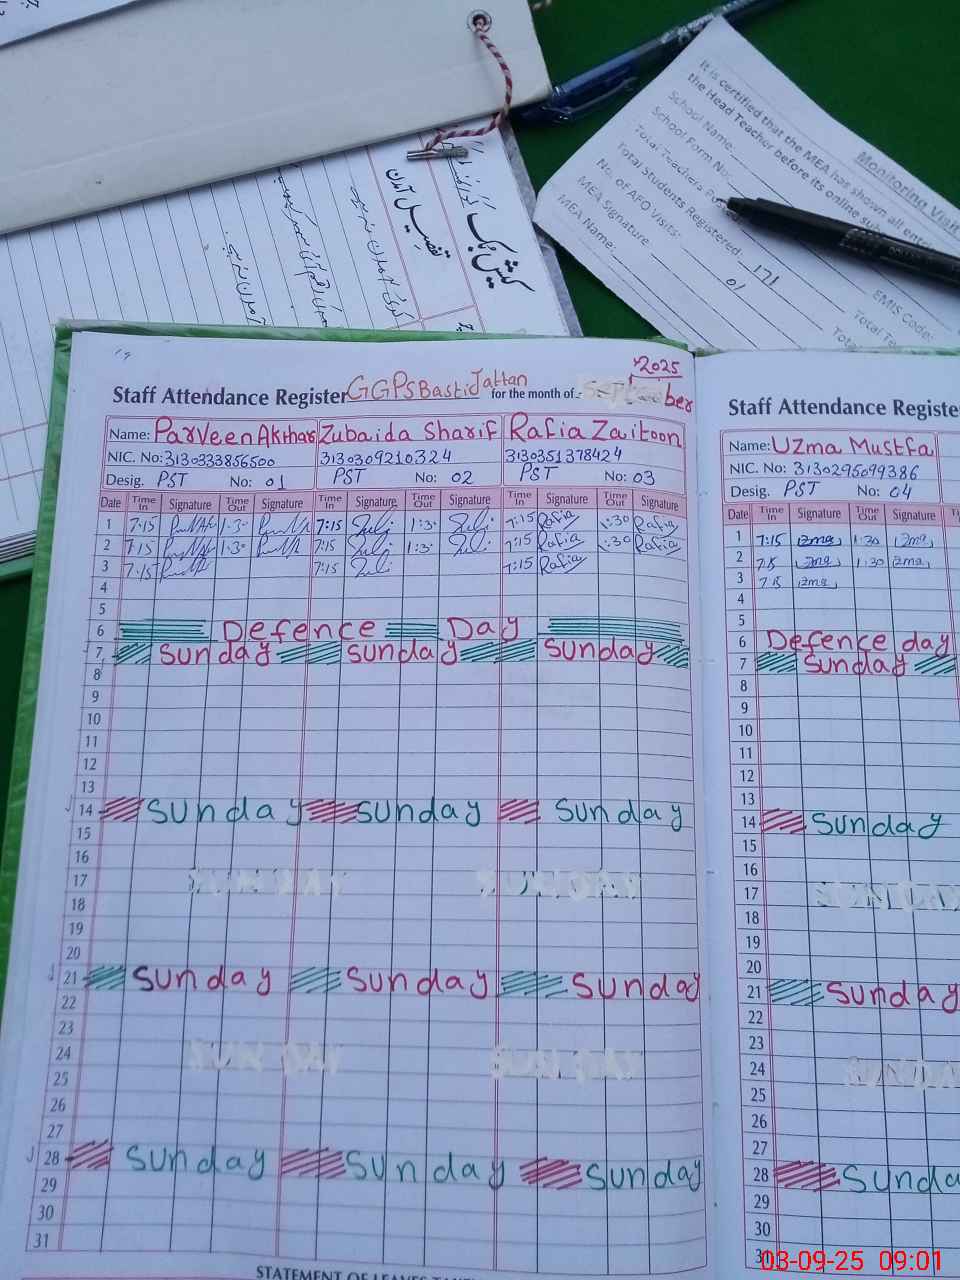 Monitoring Visit
It is certified that the MEA has shown all
the Head Teacher before its online
School Name:
School Form No:
EMIS Code:
Total Teachers
Total Students Registered: 171
No. of AFO Visits: 01
MEA Signature
MEA Name:
کیش بک
تفصیل آمدن
2025
Staff Attendance Register GGPS Basti Jattan for the month of September
Name: Parveen Akthar Zubaida Sharif Rafia Zaitoon
NIC. No: 3130333856500 3130309210324 3130351378424
Desig. PST No: 01 PST No: 02 PST No: 03
Date Time In Signature Time Out Signature Time In Signature Time Out Signature Time In Signature Time Out Signature
1 7:15 1:30 7:15 1:30 7:15 Rafia 1:30 Rafia
2 7:15 1:30 7:15 1:30 7:15 Rafia 1:30 Rafia
3 7:15 7:15 7:15 Rafia
4
5
6 Defence Day
7 Sunday Sunday Sunday
8
9
10
11
12
13
14 Sunday Sunday Sunday
15
16
17 SUNDAY SUNDAY
18
19
20
21 Sunday Sunday Sunday
22
23
24 SUNDAY SUNDAY
25
26
27
28 Sunday Sunday Sunday
29
30
31
Staff Attendance
Name: Uzma Mustfa
NIC. No: 3130295099386
Desig. PST No: 04
Date Time In Signature Time Out Signature
1 7:15 1:30
2 7:15 1:30
3 7:15
4
5
6 Defence day
7 Sunday
8
9
10
11
12
13
14 Sunday
15
16
17 SUNDAY
18
19
20
21 Sunday
22
23
24 SUNDAY
25
26
27
28
29
30
31
03-09-25 09:01